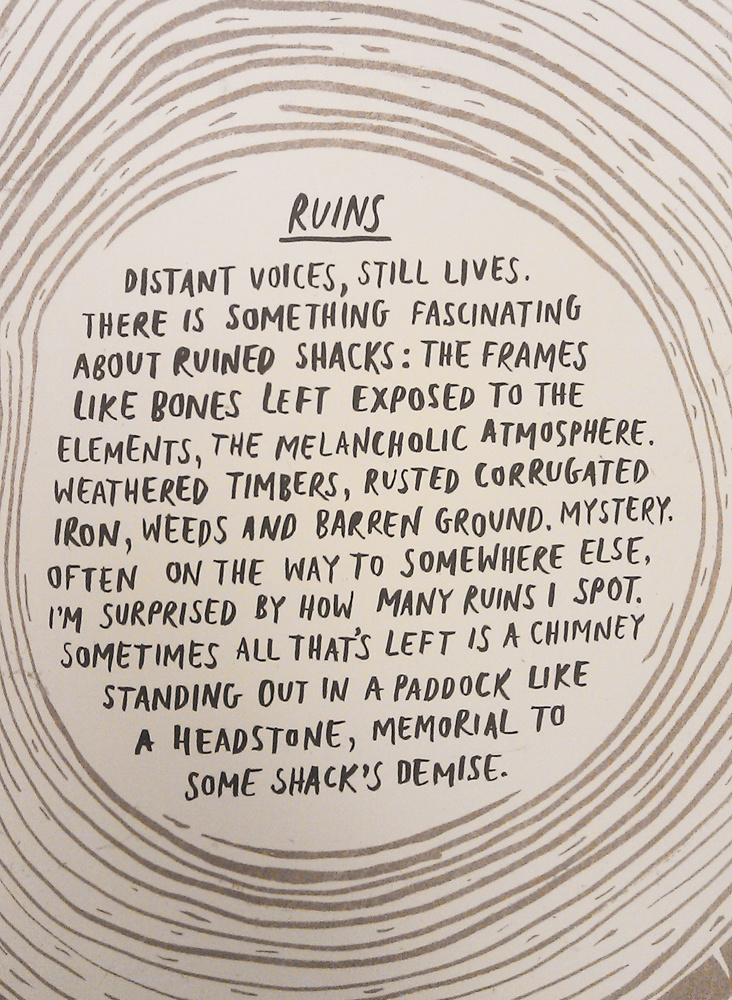 RUINS
DISTANT VOICES, STILL LIVES.
THERE IS SOMETHING FASCINATING
ABOUT RUINED SHACKS: THE FRAMES
LIKE BONES LEFT EXPOSED TO THE
ELEMENTS, THE MELANCHOLIC ATMOSPHERE.
WEATHERED TIMBERS, RUSTED CORRUGATED
IRON, WEEDS AND BARREN GROUND. MYSTERY.
OFTEN ON THE WAY TO SOMEWHERE ELSE,
I'M SURPRISED BY HOW MANY RUINS I SPOT.
SOMETIMES ALL THAT'S LEFT IS A CHIMNEY
STANDING OUT IN A PADDOCK LIKE
A HEADSTONE, MEMORIAL TO
SOME SHACK'S DEMISE.